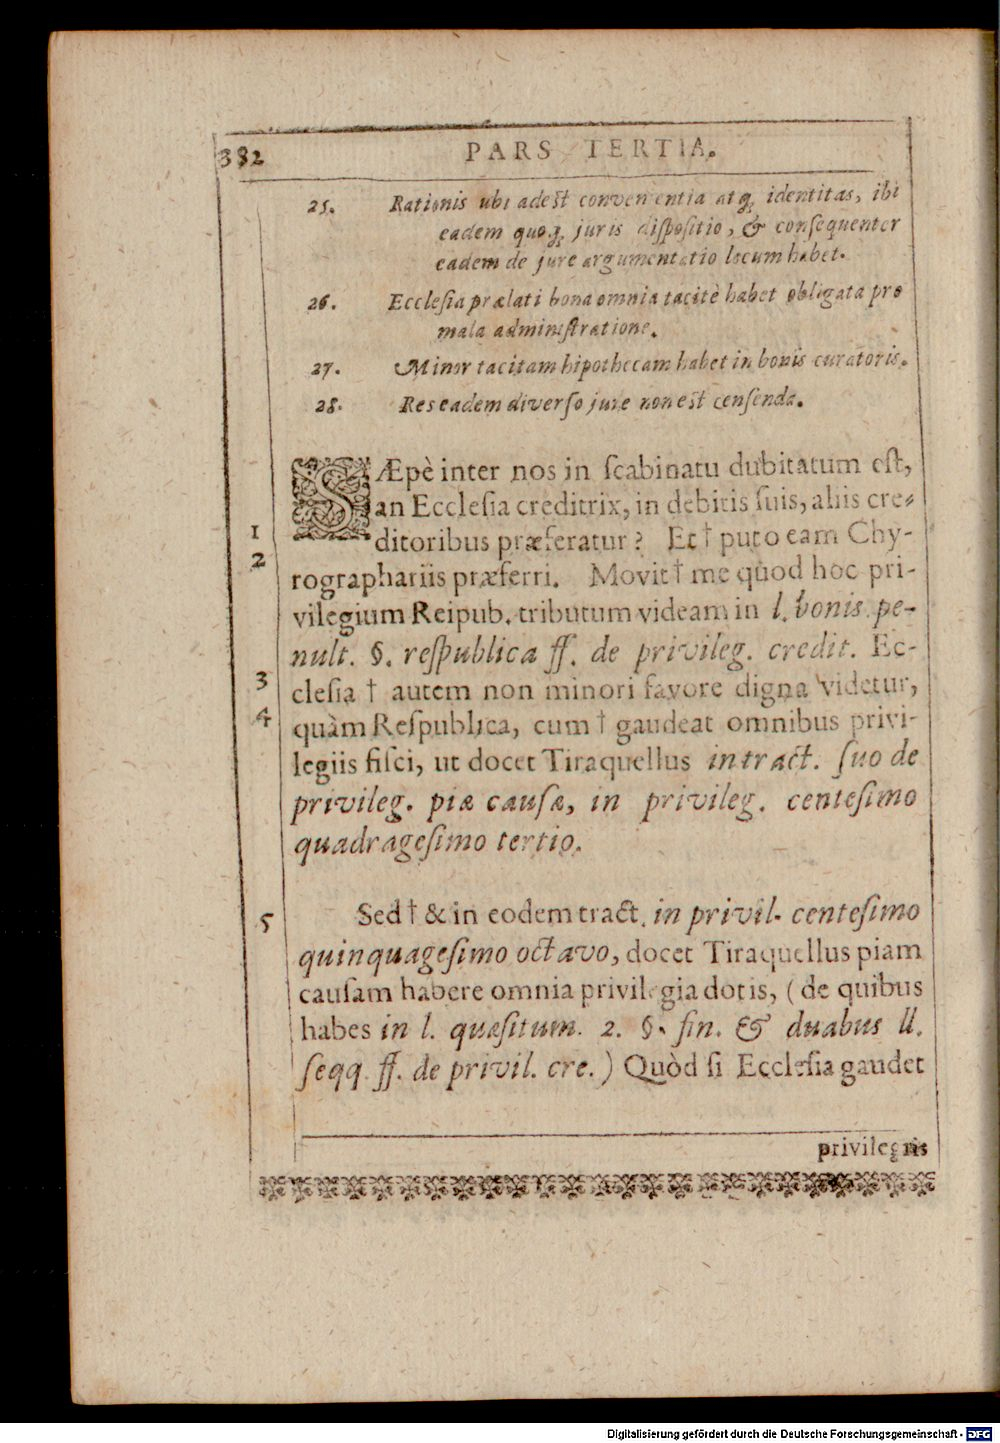 382
PARS TERTIA.
25. Rationis ubi adest convenientia atq́; identitas, ibi
eadem quoq́; juris dispositio, & consequenter
eadem de jure argumentatio locum habet.
26. Ecclesia prælati bona omnia tacitè habet obligata pro
mala administratione.
27. Minor tacitam hipothecam habet in bonis curatoris.
28. Res eadem diverso jure non est censenda.
SÆpè inter nos in ſcabinatu dubitatum eſt,
an Eccleſia creditrix, in debitis ſuis, aliis cre-
1 ditoribus præferatur? Et † puto eam Chy-
2 rographariis præferri. Movit † me quòd hoc pri-
vilegium Reipub. tributum videam in l. bonis. pe-
nult. §. reſpublica ff. de privileg. credit. Ec-
3 cleſia † autem non minori favore digna videtur,
4 quàm Reſpublica, cum † gaudeat omnibus privi-
legiis fiſci, ut docet Tiraquellus in tract. ſuo de
privileg. piæ cauſæ, in privileg. centeſimo
quadrageſimo tertio.
5 Sed † & in eodem tract. in privil. centeſimo
quinquageſimo octavo, docet Tiraquellus piam
cauſam habere omnia privilegia dotis, (de quibus
habes in l. quæſitum. 2. §. fin. & duabus ll.
ſeqq. ff. de privil. cre.) Quòd ſi Eccleſia gaudet
privilegiis
Digitalisierung gefördert durch die Deutsche Forschungsgemeinschaft - DFG